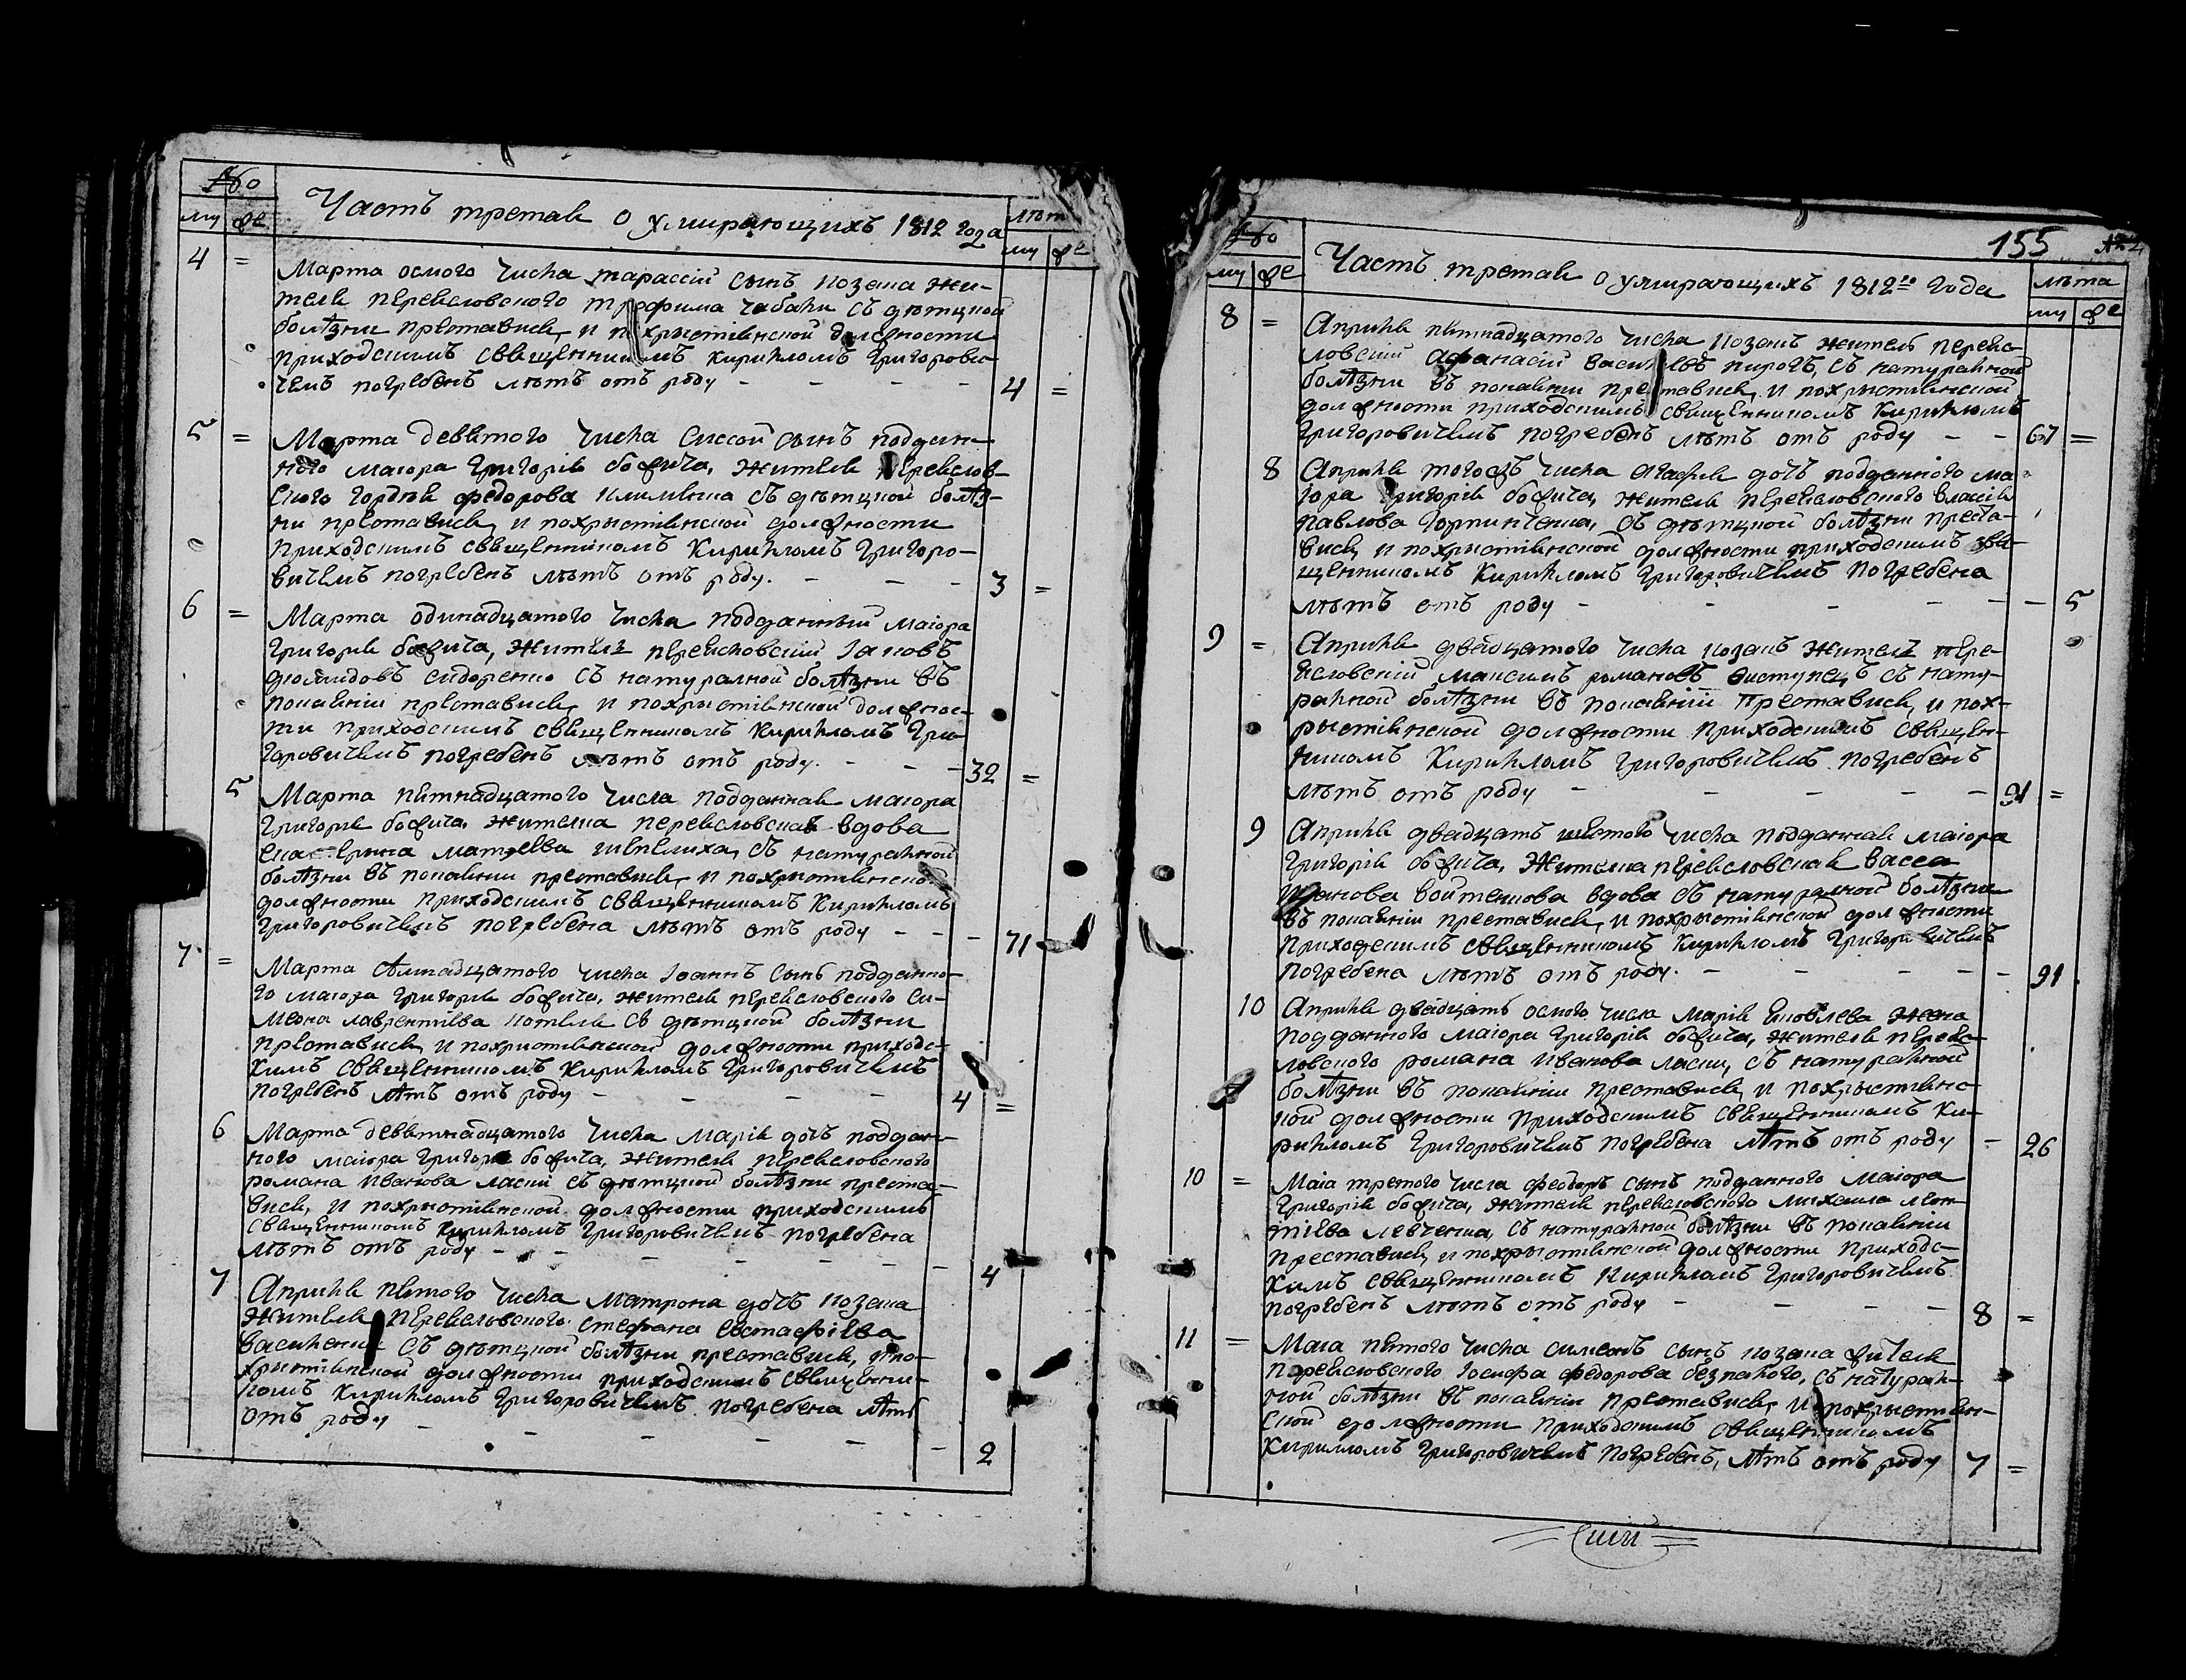 №
му фе
Часть третая о умирающихъ 1812 года
лѣт
му фе
4 =
Марта осмого числа тарассій сынъ козака жи-
теля переясловского трофима чабана съ дѣтцкой
болѣзни преставися, и похрыстіянской должности
приходскимъ священникомъ кирилломъ григорови-
чемъ погребенъ лѣтъ отъ роду - - - - 4 =
5 =
Марта девятого числа сиссой сынъ поддан-
ного маіора григорія божича, жителя переяслов-
ского гордѣя федорова съ дѣтцкой болѣз-
ни преставися, и похрыстіянской должности
приходскимъ священникомъ Кирилломъ григоро-
вичемъ погребенъ лѣтъ отъ роду. - - - 3 =
6 =
Марта одинадцатого числа подданный маіора
григорія божича, житель переясловскій Іаковъ
сидоренко съ натуралной болѣзни въ
покаяніи преставися, и похрыстіянской должнос-
ти приходскимъ священникомъ Кирилломъ Гри-
горовичемъ погребенъ лѣтъ отъ роду. - - - 32 =
5
Марта пятнадцатого числа подданная маіора
григорія божича, жителка переясловская вдова
матфеева съ натуралной
болѣзни въ покаяніи преставися, и похрыстіянской
должности приходскимъ священникомъ Кирилломъ
григоровичемъ погребена лѣтъ отъ роду - - - 71
7 =
Марта семнадцатого числа Іоаннъ сынъ поддано-
го маіора григорія божича, жителя переясловского си-
меона лаврентіева съ дѣтцкой болѣзни
преставися, и похристіянской должности приходс-
кимъ священникомъ Кирилломъ григоровичемъ
погребенъ лѣтъ отъ роду - - - - 4 =
6
Марта девятнадцатого числа Марія дочь поддан-
ного маіора григорія божича, жителя переясловского
романа иванова ласки съ дѣтцкой болѣзни преста-
вися, и похристіянской должности приходскимъ
священникомъ Кирилломъ григоровичемъ погребена
лѣтъ отъ роду - - - - - - 4
7
Апрѣля пятого числа Матрона дочь козака
жителя переясловского стефана евстафіева
василенка съ дѣтцкой болѣзни преставися, ипо-
хрыстіянской должности приходскимъ священни-
комъ Кирилломъ Григоровичемъ погребена лѣтъ
отъ роду - - - - - - 2
155
№
му фе
Часть третая о умирающихъ 1812го года
лѣта
му фе
8 =
Апрѣля пятнадцатого числа козакъ житель переяс-
ловскій Афанасій васильевъ пирогъ, съ натуралной
болѣзни въ покаяніи преставися, и похрыстіянской
должности приходскимъ священникомъ Кирилломъ
Григоровичемъ погребенъ лѣтъ отъ роду - - 67 =
8
Апрѣля тогожъ числа агафія дочь подданного ма-
іора григорія божича, жителя переясловского власія
павлова съ дѣтцкой болѣзни преста-
вися, и похрыстіянской должности приходскимъ свя-
щенникомъ Кирилломъ Григоровичемъ погребена
лѣтъ отъ роду - - - - - - 5
9 =
Апрѣля двайцатого числа козакъ житель пере-
ясловскій Максимъ романовъ съ нату-
ралной болѣзни въ покаяніи преставися, и пох-
рыстіянской должности приходскимъ священ-
никомъ Кирилломъ григоровичемъ погребенъ
лѣтъ отъ роду - - - - - 91 =
9
Апрѣля двадцать шестого числа подданная маіора
Григорія божича, жителка переясловская васса
войтенкова вдова съ натуралной болѣзни
въ покаяніи преставися, и похрыстіянской должности
приходскимъ священникомъ Кирилломъ Григоровичемъ
погребена лѣтъ отъ роду. - - - - - 91
10
Апрѣля двайцать осмого числа Марія яковлева жена
подданного маіора григорія божича, жителя переяс-
ловского романа иванова ласки, съ натуралной
болѣзни въ покаяніи преставися, и похрыстіянс-
кой должности приходскимъ священникомъ Ки-
рилломъ григоровичемъ погребена лѣтъ отъ роду - 26
10 =
Маіа третого числа феодоръ сынъ подданного маіора
григорія божича, жителя переясловского михаила леон-
тіева левченка, съ натуралной болѣзни въ покаяніи
преставися, и похрыстіянской должности приходс-
кимъ священникомъ Кирилломъ Григоровичемъ
погребенъ лѣтъ отъ роду - - - - 8 =
11 =
Маіа пятого числа симеонъ сынъ козака жителя
переясловского Іосифа федорова безпалого, съ натурал-
ной болѣзни въ покаяніи преставися, и похрыстіян-
ской должности приходскимъ священникомъ
Кирилломъ григоровичемъ погребенъ, лѣтъ отъ роду 7 =